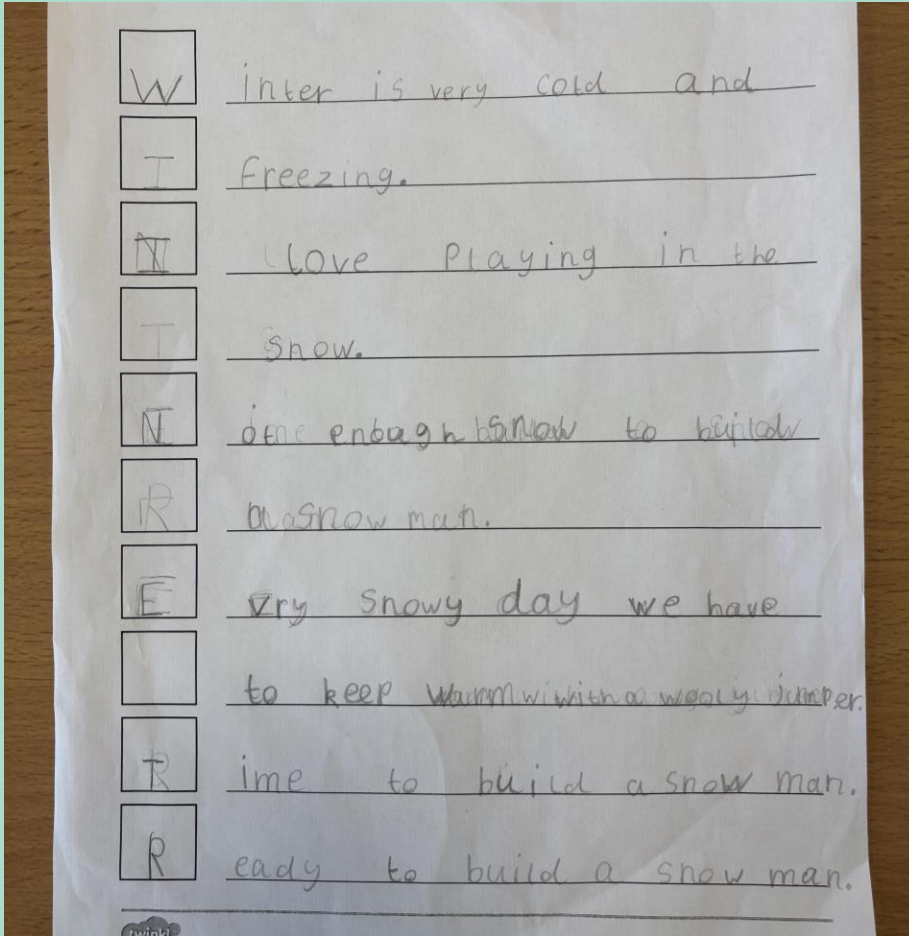 W inter is very cold and
I freezing.
love Playing in the
T snow.
N to
R a Snow man.
E vry Snowy day we have
to keep warm with a wooly jumper.
T ime to build a snow man.
R eady to build a snow man.
twinkl